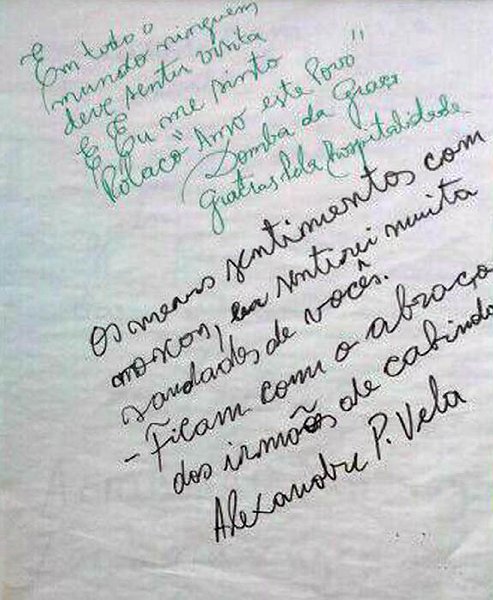 E
Em todo o
mundo ninguem
deve sentir visita
E E Eu me sinto
Pólaco "Amo este Povo"
Domba da Graça
gratias pela Hospitalidade
Os meus sentimentos com
moscos, eu sentirei muita
saudades de vocês.
- Ficam com o abraço
dos irmãos de cabinda
Alexandre P. Vela